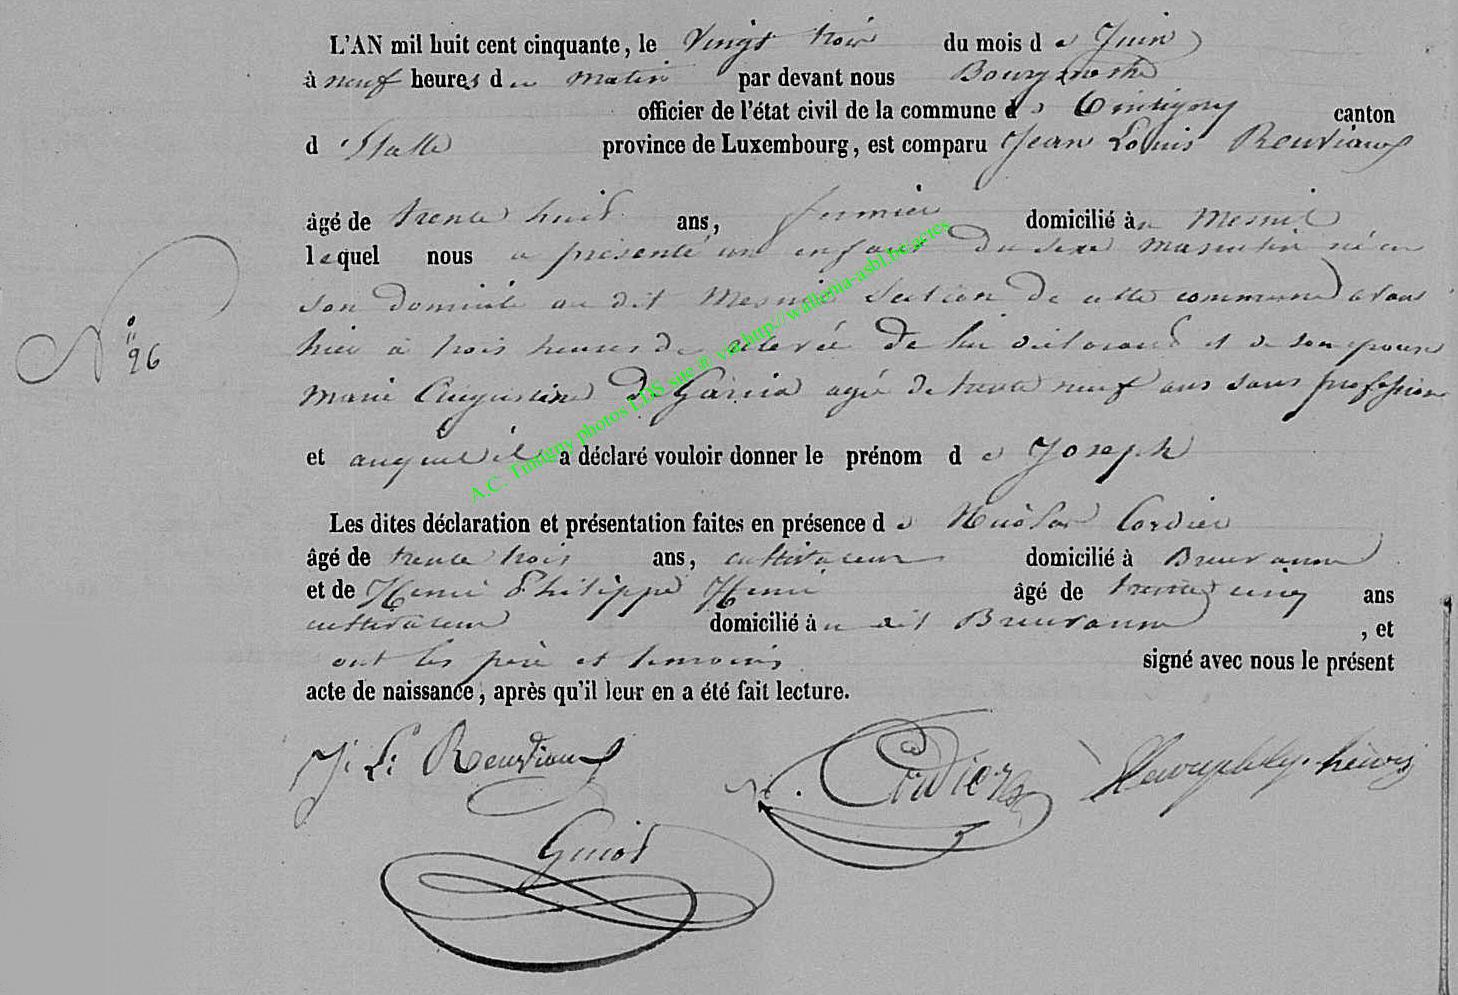 L'AN mil huit cent cinquante, le Vingt trois du mois de Juin
à neuf heures du matin par devant nous Bourgmestre
officier de l'état civil de la commune de Tintigny canton
d'Etalle province de Luxembourg, est comparu Jean Louis Reuviaux
âgé de trente huit ans, fermier domicilié à Mesnil
lequel nous a présenté un enfant du sexe masculin né en
son domicile au dit Mesnil section de cette commune avant
N° 96
hier à trois heures de relevée de lui déclarant et de son épouse
Marie Augustine de Garcia agée de trente neuf ans sans profession
et auquel il a déclaré vouloir donner le prénom de Joseph
Les dites déclaration et présentation faites en présence de Nicolas Cordier
âgé de trente trois ans, cultivateur domicilié à Breuvanne
et de Henri Philippe Henri âgé de trente cinq ans
cultivateur domicilié au dit Breuvanne, et
ont les père et temoins signé avec nous le présent
acte de naissance, après qu'il leur en a été fait lecture.
J. L. Reuviaux
Cordier
Guiot
A.C. Tintigny photos LDS site ® via http://wallonia-asbl.be/actes